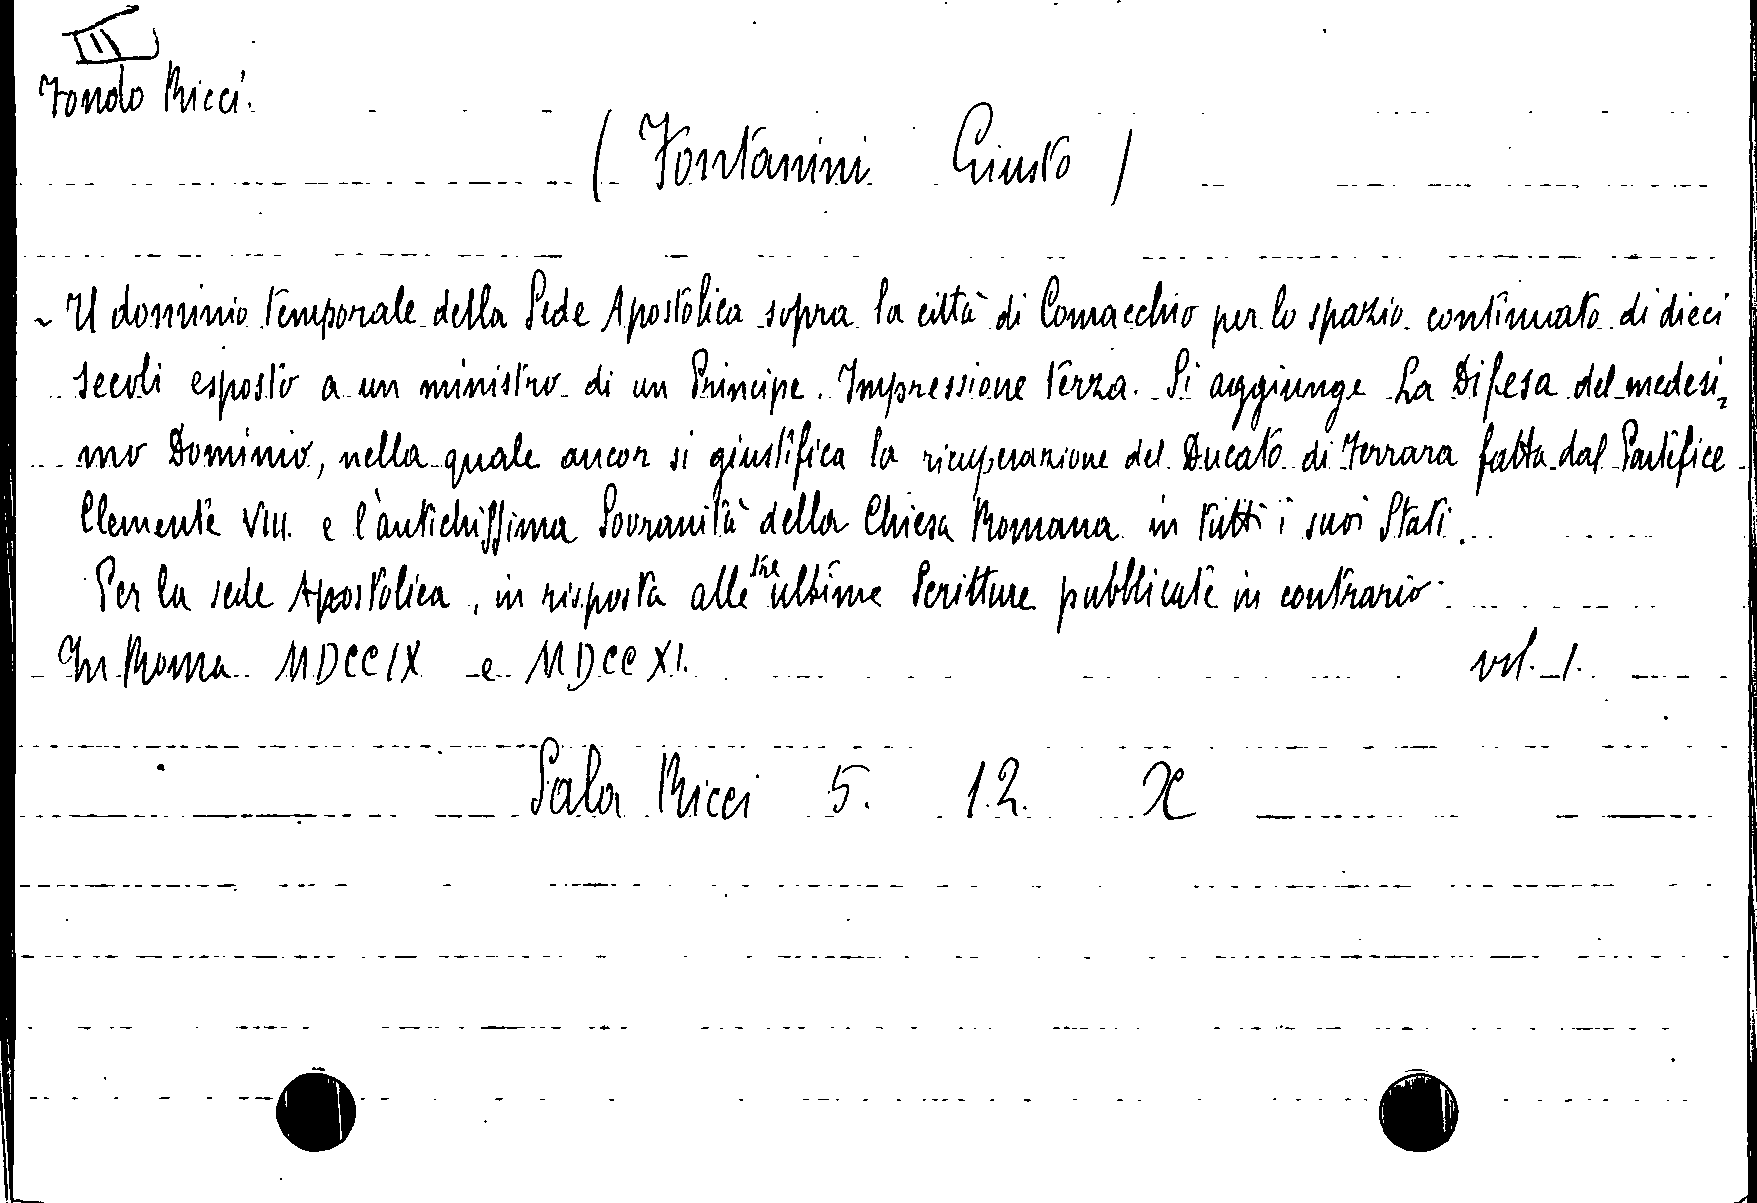 III
Fondo Ricci.
( Fontanini Giusto )
- Il dominio temporale della Sede Apostolica sopra la città di Comacchio per lo spazio continuato di dieci
secoli esposto a un ministro di un Principe. Impressione terza. Si aggiunge La Difesa del medesi=
mo Dominio, nella quale ancor si giustifica la ricuperazione del Ducato di Ferrara fatta dal Pontifice
Clemente VIII. e l'antichissima Sovranità della Chiesa Romana in tutti i suoi Stati.
Per la sede Apostolica, in risposta alle tre ultime Scritture pubblicate in contrario.
In Roma MDCCIX e MDCCXI. vol. 1.
Sala Ricci 5. 12. X